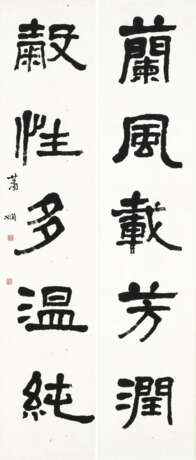 蘭風載芳潤
穀性多溫純
蕭嫻